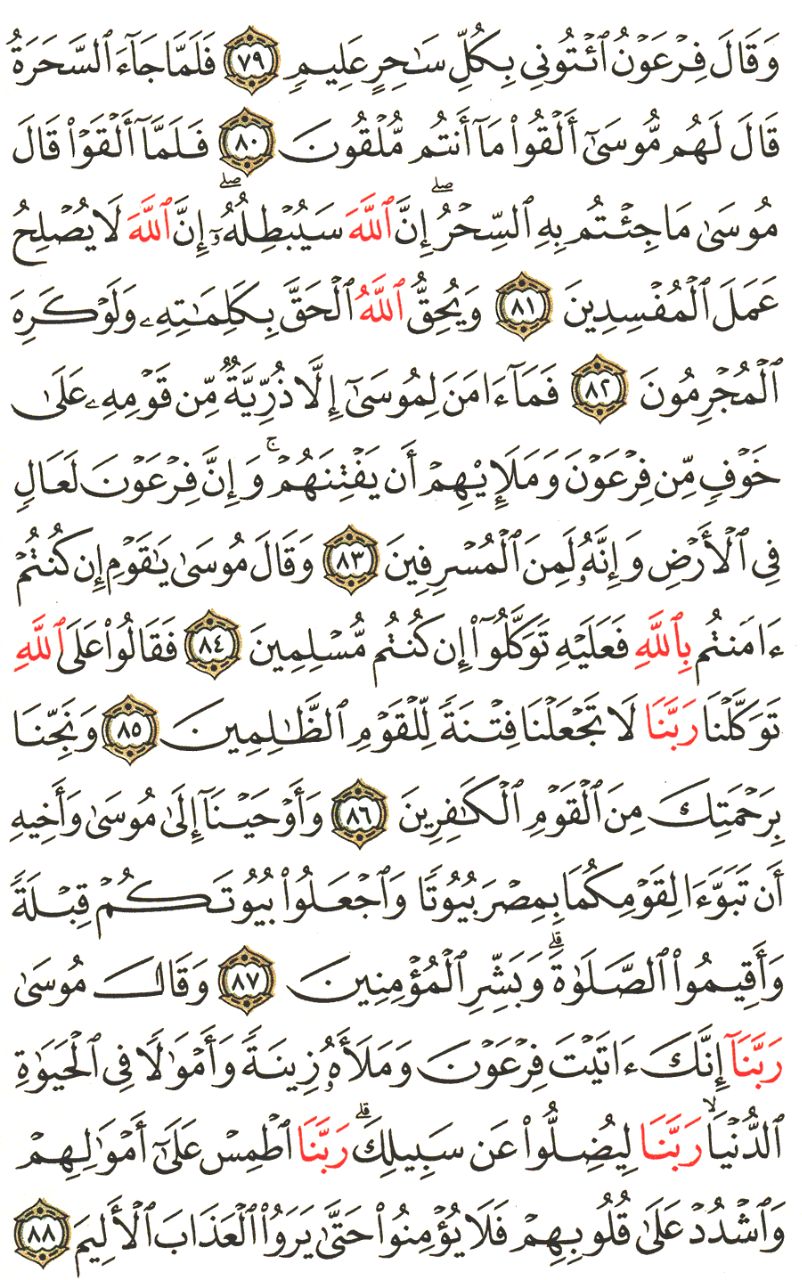 وَقَالَ فِرۡعَوۡنُ ٱئۡتُونِي بِكُلِّ سَٰحِرٍ عَلِيمٖ ٧٩ فَلَمَّا جَآءَ ٱلسَّحَرَةُ
قَالَ لَهُم مُّوسَىٰٓ أَلۡقُواْ مَآ أَنتُم مُّلۡقُونَ ٨٠ فَلَمَّآ أَلۡقَوۡاْ قَالَ
مُوسَىٰ مَا جِئۡتُم بِهِ ٱلسِّحۡرُۖ إِنَّ ٱللَّهَ سَيُبۡطِلُهُۥٓۖ إِنَّ ٱللَّهَ لَا يُصۡلِحُ
عَمَلَ ٱلۡمُفۡسِدِينَ ٨١ وَيُحِقُّ ٱللَّهُ ٱلۡحَقَّ بِكَلِمَٰتِهِۦ وَلَوۡ كَرِهَ
ٱلۡمُجۡرِمُونَ ٨٢ فَمَآ ءَامَنَ لِمُوسَىٰٓ إِلَّا ذُرِّيَّةٞ مِّن قَوۡمِهِۦ عَلَىٰ
خَوۡفٖ مِّن فِرۡعَوۡنَ وَمَلَإِيْهِمۡ أَن يَفۡتِنَهُمۡۚ وَإِنَّ فِرۡعَوۡنَ لَعَالٖ
فِي ٱلۡأَرۡضِ وَإِنَّهُۥ لَمِنَ ٱلۡمُسۡرِفِينَ ٨٣ وَقَالَ مُوسَىٰ يَٰقَوۡمِ إِن كُنتُمۡ
ءَامَنتُم بِٱللَّهِ فَعَلَيۡهِ تَوَكَّلُوٓاْ إِن كُنتُم مُّسۡلِمِينَ ٨٤ فَقَالُواْ عَلَى ٱللَّهِ
تَوَكَّلۡنَا رَبَّنَا لَا تَجۡعَلۡنَا فِتۡنَةٗ لِّلۡقَوۡمِ ٱلظَّٰلِمِينَ ٨٥ وَنَجِّنَا
بِرَحۡمَتِكَ مِنَ ٱلۡقَوۡمِ ٱلۡكَٰفِرِينَ ٨٦ وَأَوۡحَيۡنَآ إِلَىٰ مُوسَىٰ وَأَخِيهِ
أَن تَبَوَّءَا لِقَوۡمِكُمَا بِمِصۡرَ بُيُوتٗا وَٱجۡعَلُواْ بُيُوتَكُمۡ قِبۡلَةٗ
وَأَقِيمُواْ ٱلصَّلَوٰةَۗ وَبَشِّرِ ٱلۡمُؤۡمِنِينَ ٨٧ وَقَالَ مُوسَىٰ
رَبَّنَآ إِنَّكَ ءَاتَيۡتَ فِرۡعَوۡنَ وَمَلَأَهُۥ زِينَةٗ وَأَمۡوَٰلٗا فِي ٱلۡحَيَوٰةِ
ٱلدُّنۡيَاۙ رَبَّنَا لِيُضِلُّواْ عَن سَبِيلِكَۗ رَبَّنَا ٱطۡمِسۡ عَلَىٰٓ أَمۡوَٰلِهِمۡ
وَٱشۡدُدۡ عَلَىٰ قُلُوبِهِمۡ فَلَا يُؤۡمِنُواْ حَتَّىٰ يَرَوُاْ ٱلۡعَذَابَ ٱلۡأَلِيمَ ٨٨